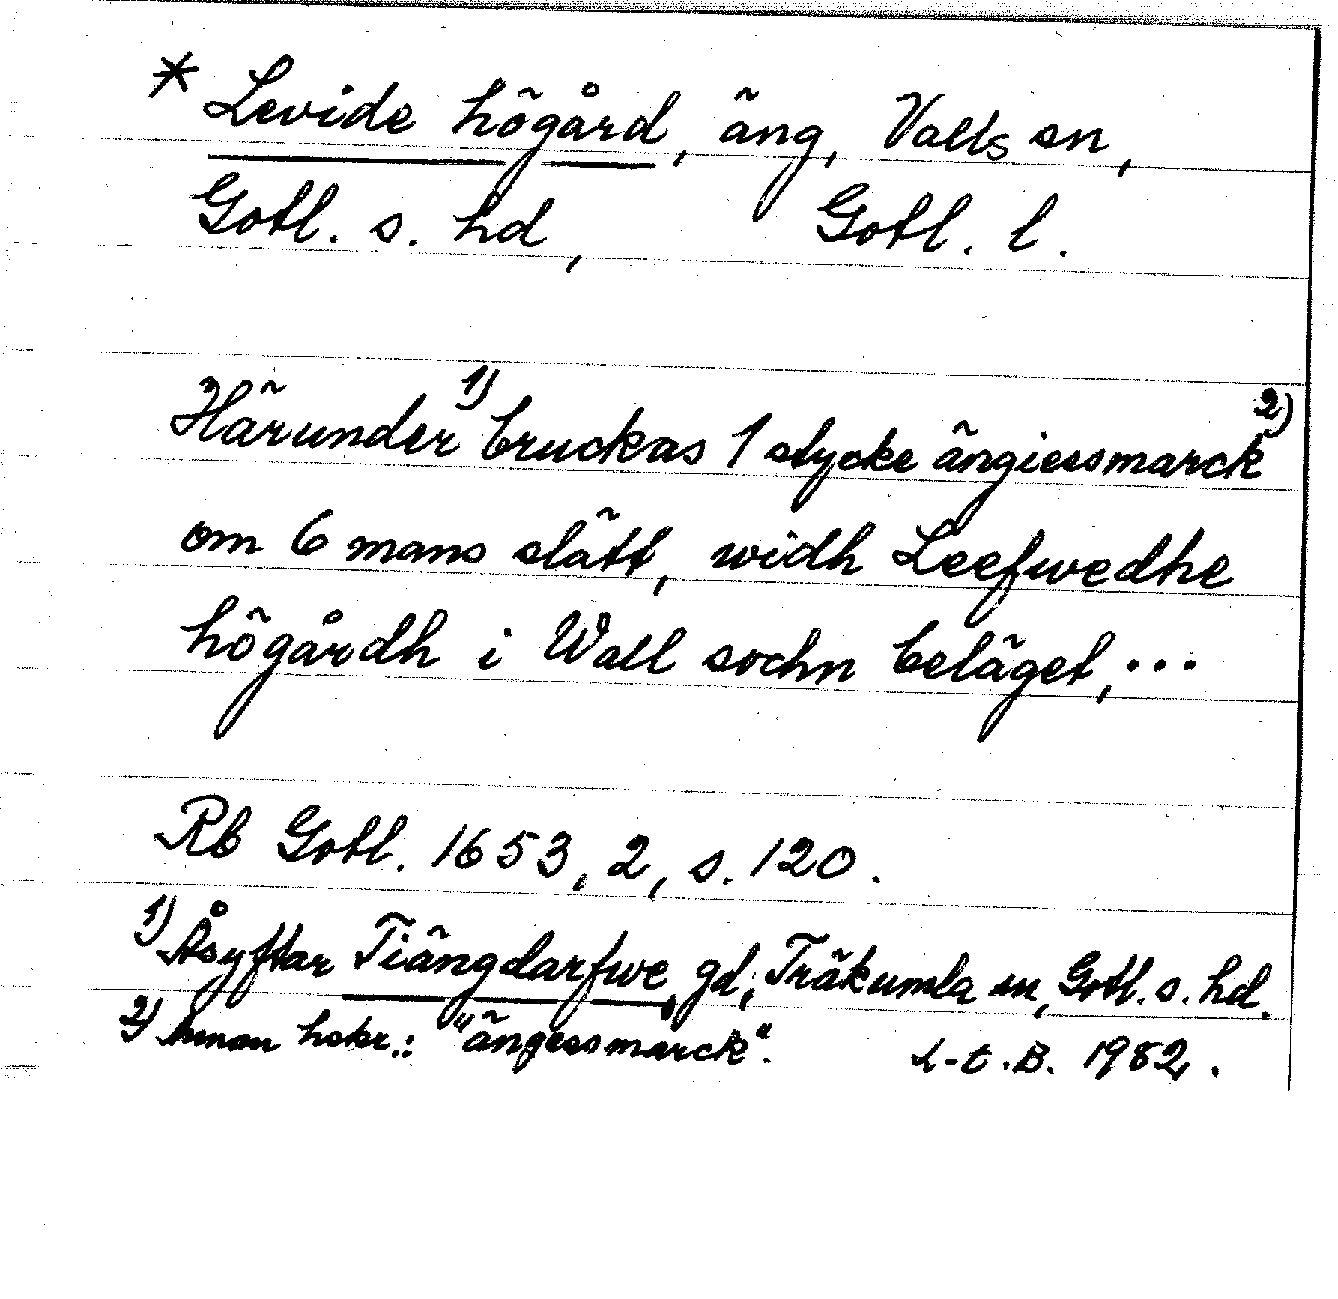 * Levide högård, äng, Valls sn,
Gotl. s. hd, Gotl. l.
Härunder 1) bruckas 1 stycke ängiessmarck 2)
om 6 mans slätt, widh Leefwedhe
högårdh i Wall sochn beläget, ...
Rb Gotl. 1653, 2, s. 120.
1) Åsyftar Tiängdarfwe, gd, Träkumla sn, Gotl. s. hd.
2) Annan hskr.: "ängessmarck". L-t.B. 1982.